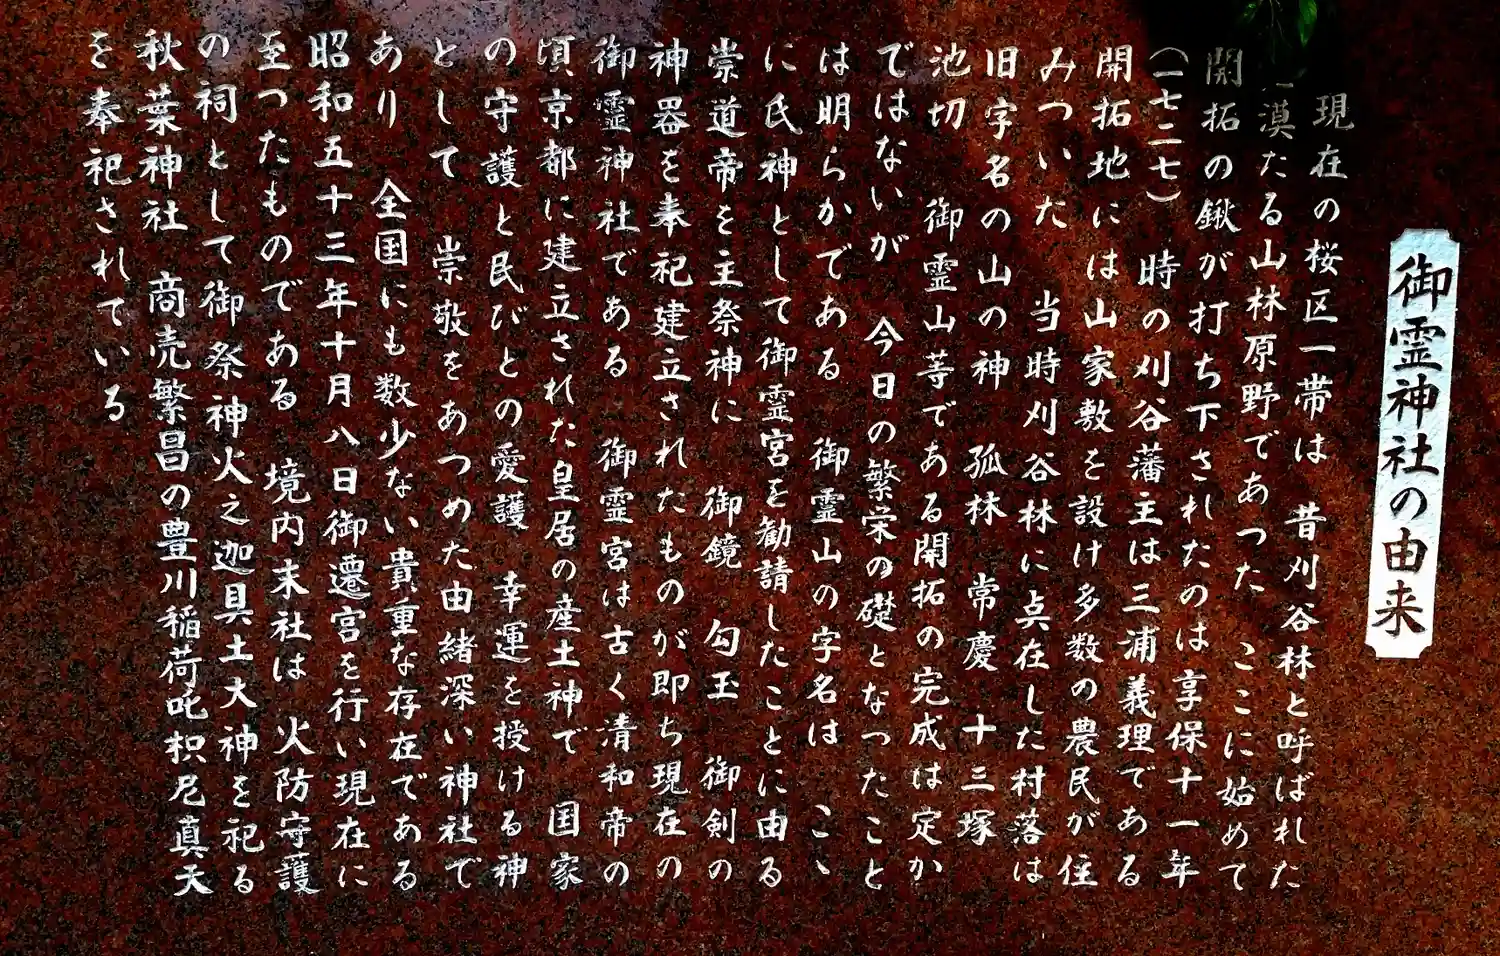 御霊神社の由来
現在の桜区一帯は 昔刈谷林と呼ばれた
漠たる山林原野であった ここに始めて
開拓の鍬が打ち下されたのは享保十一年
(一七二七) 時の刈谷藩主は三浦義理である
開拓地には山家敷を設け多数の農民が住
みついた 当時刈谷林に点在した村落は
旧字名の山の神 孤林 常慶 十三塚
池切 御霊山等である開拓の完成は定か
ではないが 今日の繁栄の礎となったこと
は明らかである 御霊山の字名は こゝ
に氏神として御霊宮を勧請したことに由る
崇道帝を主祭神に 御鏡 勾玉 御剣の
神器を奉祀建立されたものが即ち現在の
御霊神社である 御霊宮は古く清和帝の
頃京都に建立された皇居の産土神で 国家
の守護と民びとの愛護 幸運を授ける神
として 崇敬をあつめた由緒深い神社で
あり 全国にも数少ない貴重な存在である
昭和五十三年十月八日御遷宮を行い現在に
至ったものである 境内末社は 火防守護
の祠として御祭神火之迦具土大神を祀る
秋葉神社 商売繁昌の豊川稲荷吒枳尼真天
を奉祀されている